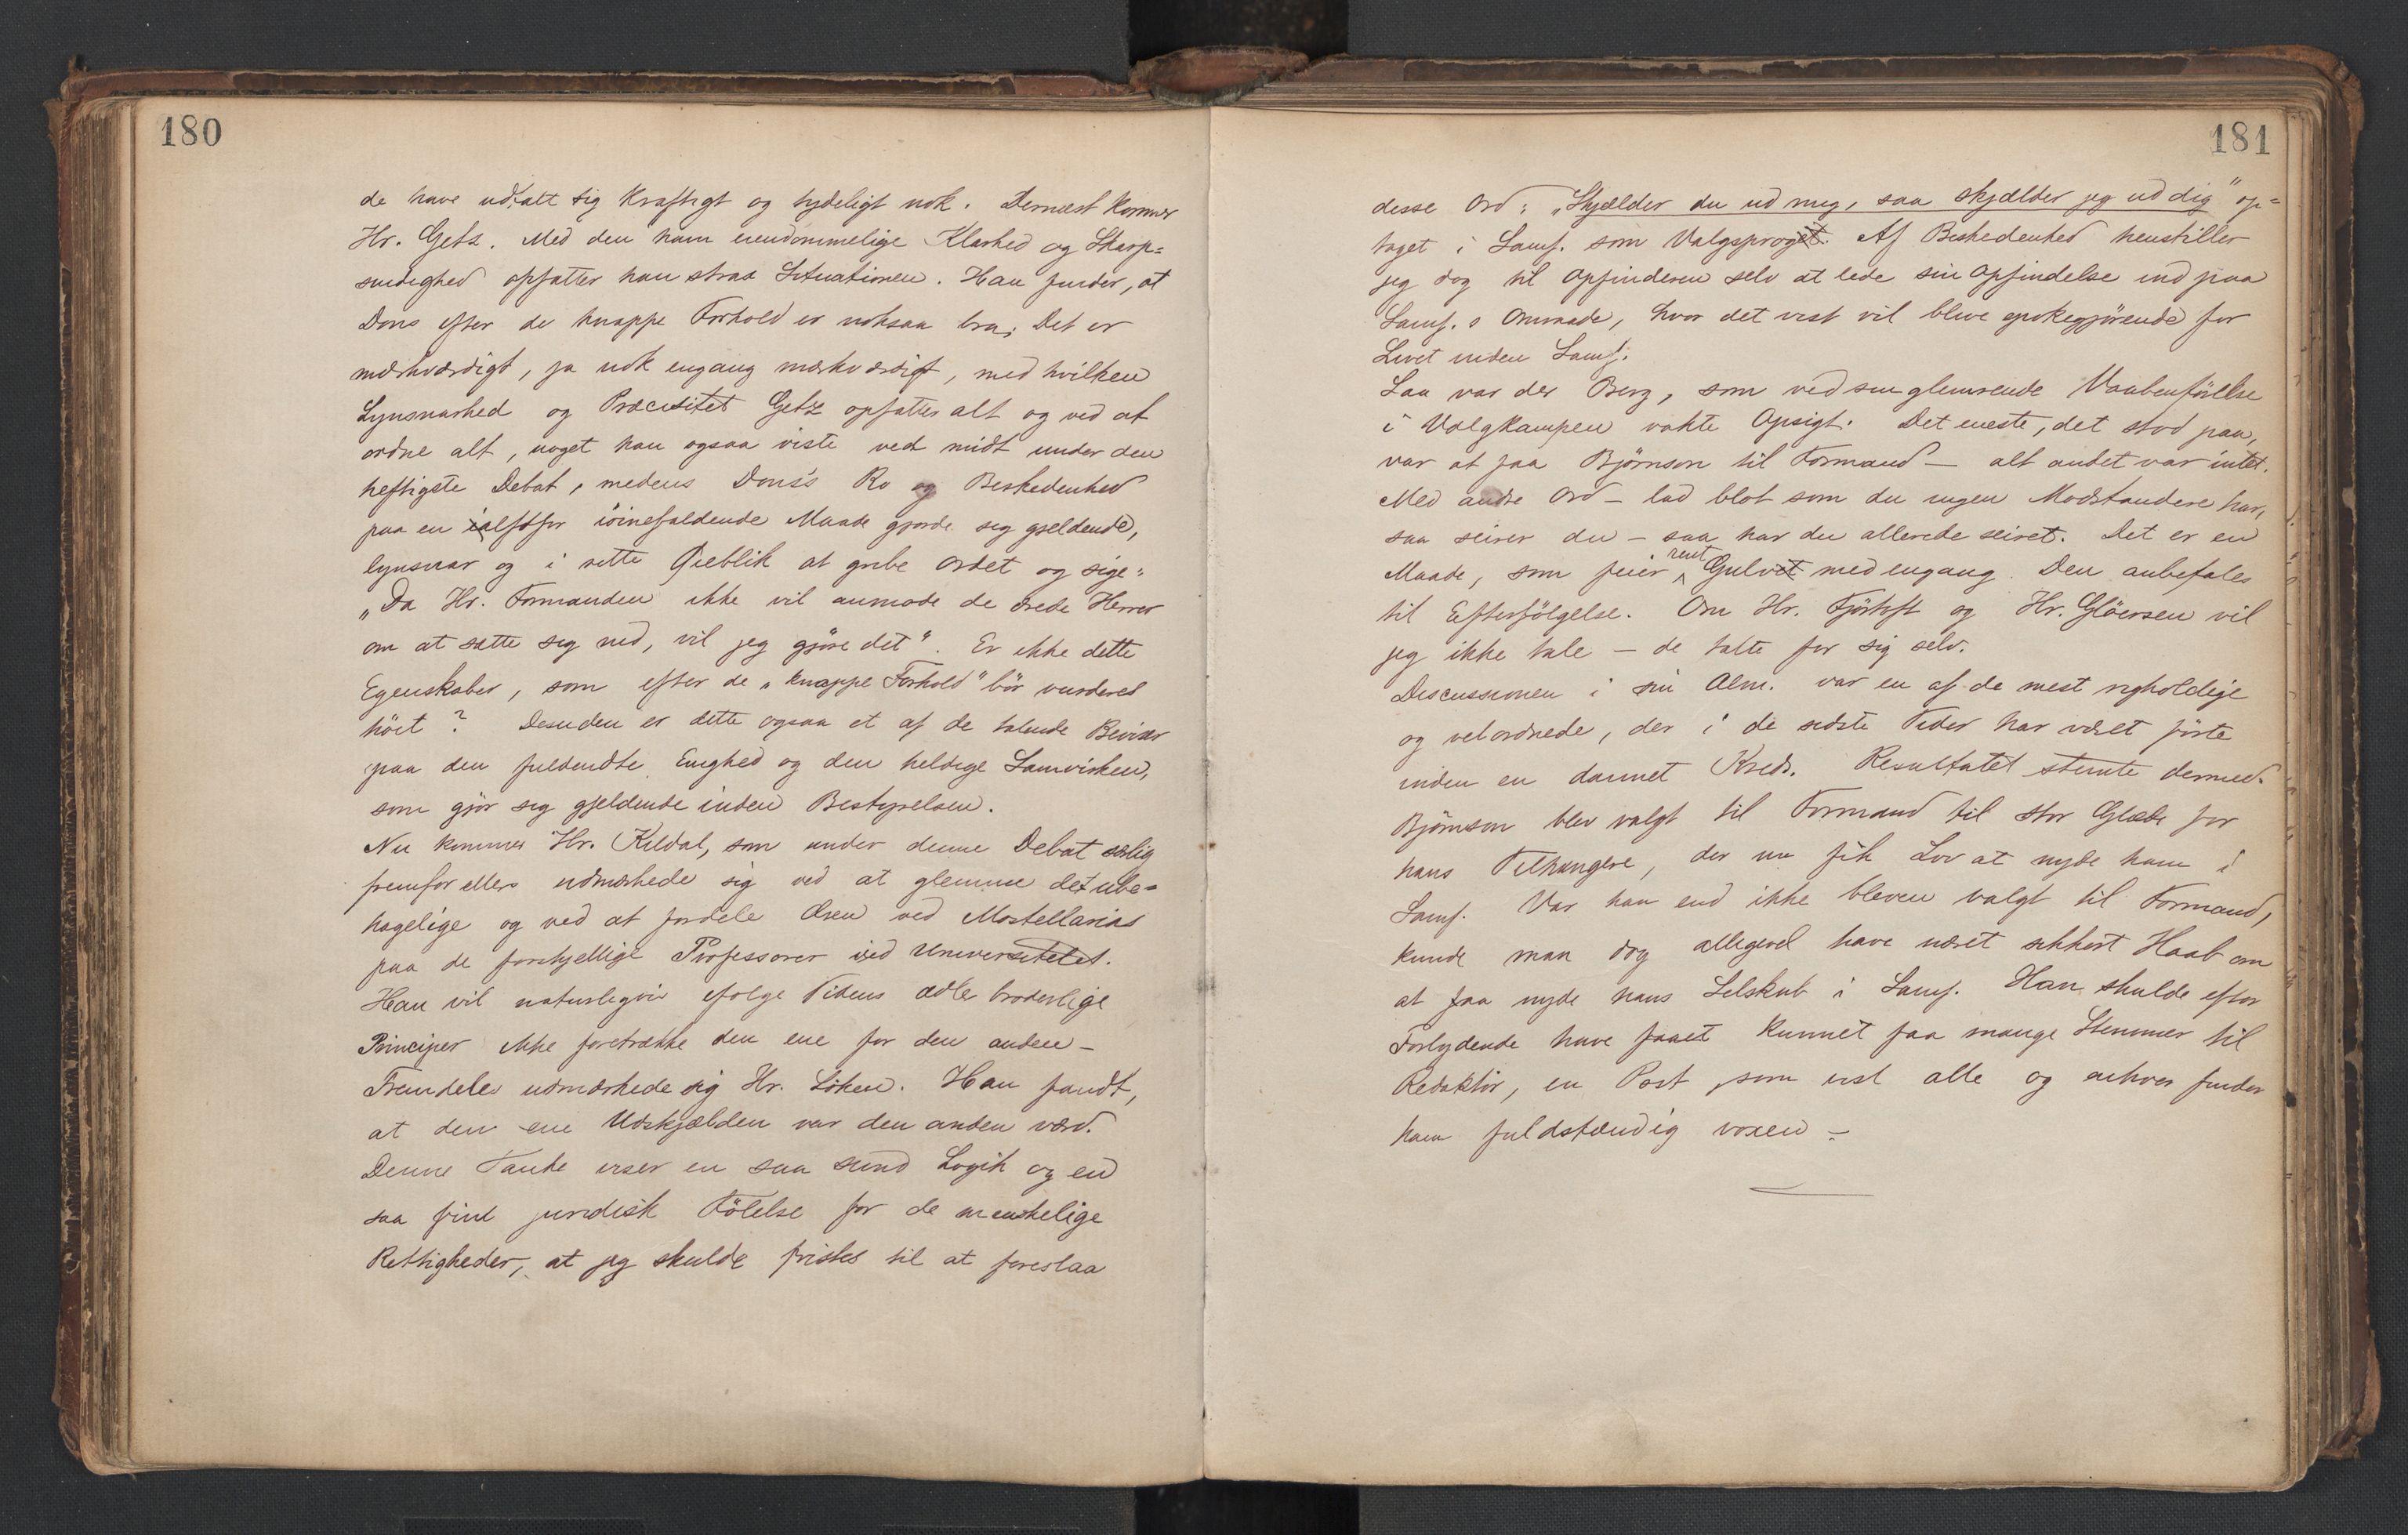 180
de have udtalt sig kraftigt og tydeligt nok. Dernæst kommer
Hr. Getz. Med den ham eiendommelige Klarhed og Skarp=
sindighed opfatter han strax Situationen. Han finder, at
Dons efter de knappe Forhold er noksaa bra; Det er
mærkværdigt, ja nok engang mærkværdigt, med hvilken
Lynsnarhed og Præcisitet Getz opfatter alt og ved at
ordne alt, noget han ogsaa viste ved midt under den
heftigste Debat, medens Dons's Ro og Beskedenhed
paa en altfor iöinefaldende Maade gjorde sig gjeldende,
lynsnar og i rette Øieblik at gribe Ordet og sige:
„Da Hr. Formanden ikke vil anmode de ærede Herrer
om at sætte sig ned, vil jeg gjöre det". Er ikke dette
Egenskaber, som efter de „knappe Forhold" bör vurderes
höit? Desuden er dette ogsaa et af de talende Beviser
paa den fuldendte Enighed og den heldige Samvirken,
som gjör sig gjeldende inden Bestyrelsen.
Nu kommer Hr. Kildal, som under denne Debat særlig
fremfor ellers udmærkede sig ved at glemme det ube=
hagelige og ved at fordele Æren ved Mostellarias
paa de forskjellige Professorer ved Universitetet.
Han vil naturligvis ifölge Tidens ædle broderlige
Principer ikke foretrække den ene for den anden –
Fremdeles udmærkede sig Hr. Löken. Han fandt,
at den ene Udskjælden var den anden værd.
Denne Tanke viser en saa sund Logik og en
saa fint juridisk Fölelse for de menskelige
Rettigheder, at jeg skulde fristes til at foreslaa
181
disse Ord: „Skjælder du ud mig, saa skjælder jeg ud dig" op=
taget i Samf. som Valgsprog. Af Beskedenhed henstiller
jeg dog til Opfinderen selv at lede sin Opfindelse ind paa
Samf.s Omraade, hvor det vist vil blive epokegjörende for
Livet inden Samf.
Saa var der Berg, som ved sin glimrende Vaabenförelse
i Valgkampen vakte Opsigt. Det eneste, det stod paa,
var at faa Björnson til Formand – alt andet var intet.
Med andre Ord – lad blot som du ingen Modstandere har,
saa seirer du – saa har du allerede seiret. Det er en
Maade, som feier rent Gulvet med engang. Den anbefales
til Efterfölgelse. Om Hr. Fjörtoft og Hr. Glöersen vil
jeg ikke tale – de talte for sig selv.
Discussionen i sin Alm. var en af de mest righoldige
og velordnede, der i de sidste Tider har været förte
inden en dannet Kreds. Resultatet stemte dermed.
Björnson blev valgt til Formand til stor Glæde for
hans Tilhængere, der nu fik Lov at nyde ham i
Samf. Var han end ikke bleven valgt til Formand,
kunde man dog alligevel have næret sikkert Haab om
at faa nyde hans Selskab i Samf. Han skulde efter
Forlydende have faaet kunnet faa mange Stemmer til
Redaktör, en Post, som vist alle og enhver finder
ham fuldstændig voxen –